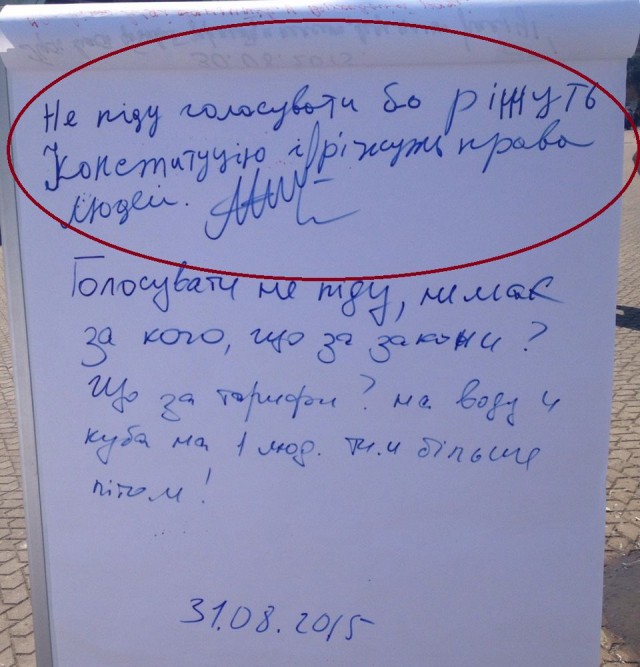 30.08.2015
Не піду голосувати бо ріжуть
Конституцію і ріжуть права
людей.
Голосувати не піду, немає
за кого, що за закони?
Що за тарифи? на воду 4
куба на 1 люд. тим більше
літом!
31.08.2015